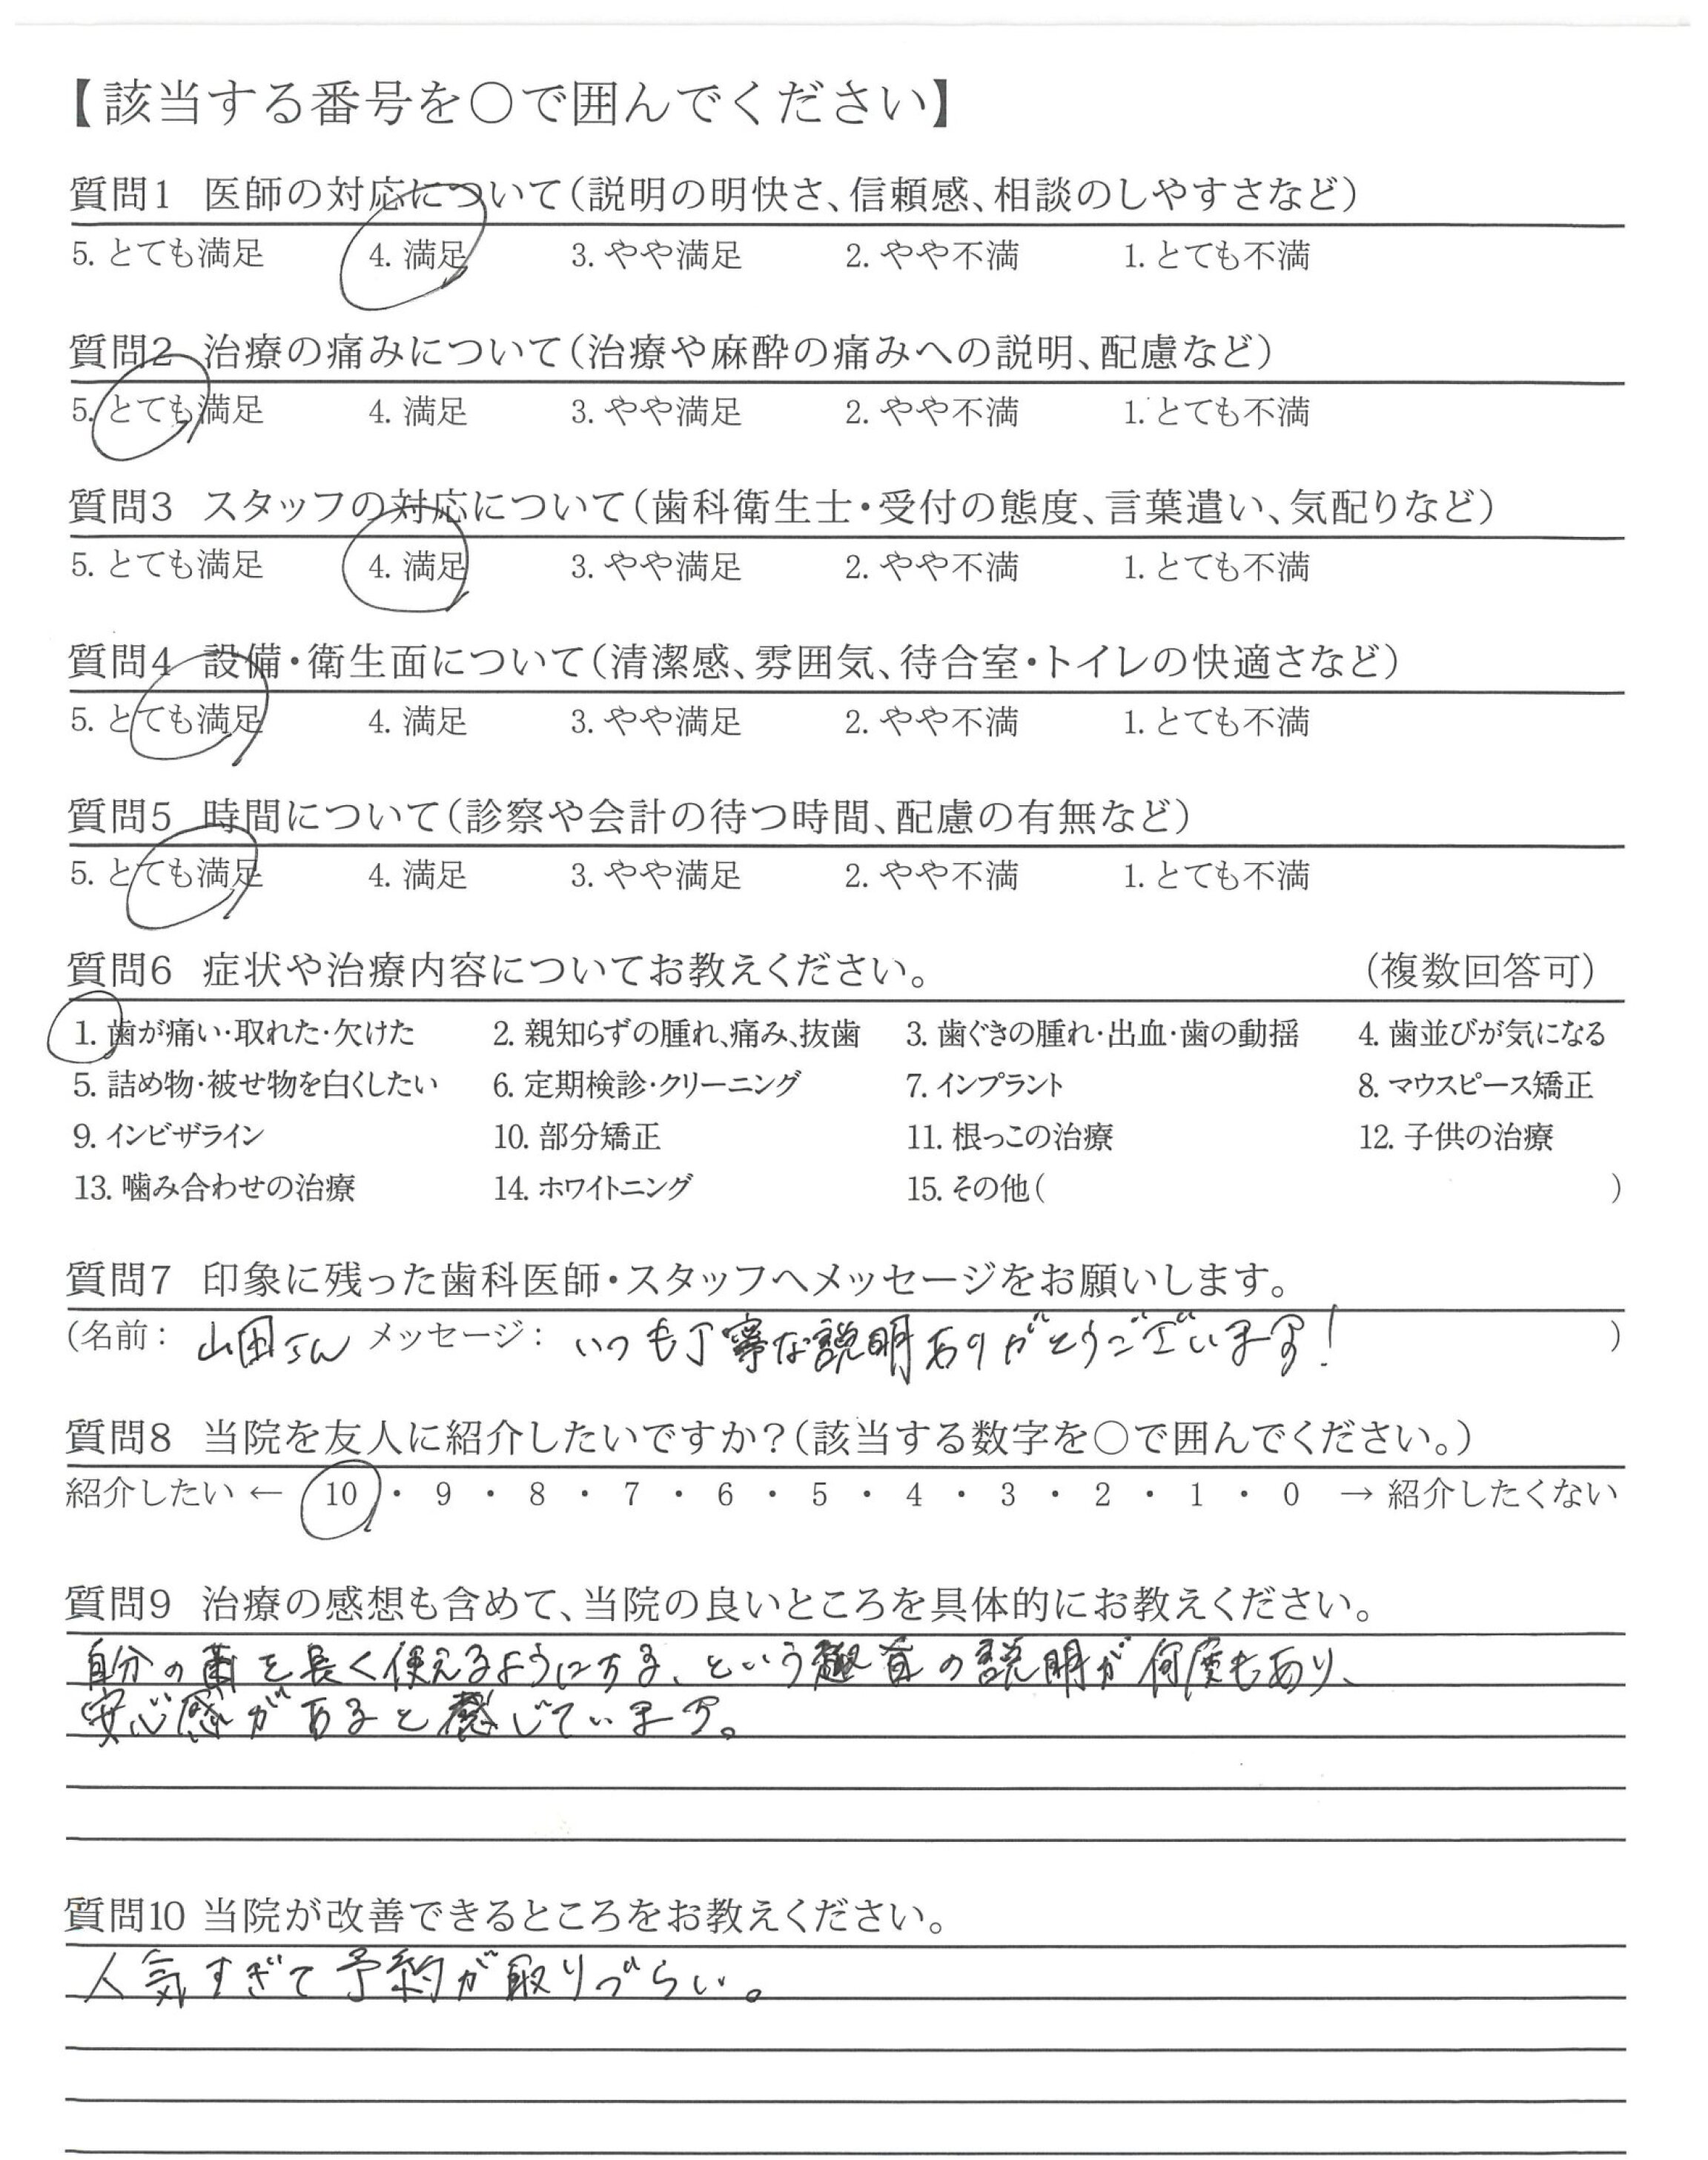 【該当する番号を〇で囲んでください】
質問1 医師の対応について（説明の明快さ、信頼感、相談のしやすさなど）
5. とても満足 4. 満足 3. やや満足 2. やや不満 1. とても不満
質問2 治療の痛みについて（治療や麻酔の痛みへの説明、配慮など）
5. とても満足 4. 満足 3. やや満足 2. やや不満 1. とても不満
質問3 スタッフの対応について（歯科衛生士・受付の態度、言葉遣い、気配りなど）
5. とても満足 4. 満足 3. やや満足 2. やや不満 1. とても不満
質問4 設備・衛生面について（清潔感、雰囲気、待合室・トイレの快適さなど）
5. とても満足 4. 満足 3. やや満足 2. やや不満 1. とても不満
質問5 時間について（診察や会計の待つ時間、配慮の有無など）
5. とても満足 4. 満足 3. やや満足 2. やや不満 1. とても不満
質問6 症状や治療内容についてお教えください。 （複数回答可）
1. 歯が痛い・取れた・欠けた 2. 親知らずの腫れ、痛み、抜歯 3. 歯ぐきの腫れ・出血・歯の動揺 4. 歯並びが気になる
5. 詰め物・被せ物を白くしたい 6. 定期検診・クリーニング 7. インプラント 8. マウスピース矯正
9. インビザライン 10. 部分矯正 11. 根っこの治療 12. 子供の治療
13. 噛み合わせの治療 14. ホワイトニング 15. その他（ ）
質問7 印象に残った歯科医師・スタッフへメッセージをお願いします。
（名前： 山田さん メッセージ： いつも丁寧な説明ありがとうございます！ ）
質問8 当院を友人に紹介したいですか？（該当する数字を〇で囲んでください。）
紹介したい ← 10 ・ 9 ・ 8 ・ 7 ・ 6 ・ 5 ・ 4 ・ 3 ・ 2 ・ 1 ・ 0 → 紹介したくない
質問9 治療の感想も含めて、当院の良いところを具体的にお教えください。
自分の歯を長く使えるようにする、という趣旨の説明が何度もあり、
安心感があると感じています。
質問10 当院が改善できるところをお教えください。
人気すぎて予約が取りづらい。